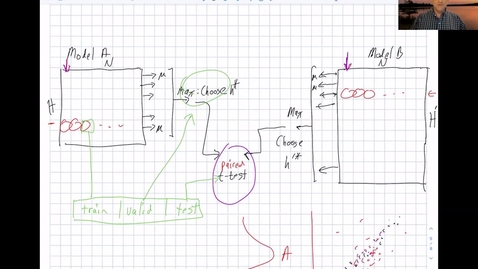 Model A
N
H
μ
μ
Max: Choose h*
train | valid | test
paired
t-test
Model B
N
H'
μ
μ
Max
Choose
h'*
A